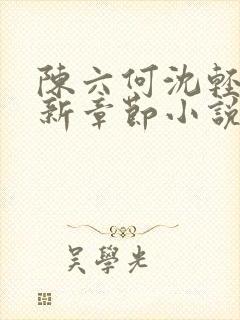 陳六何沈輕
新章節小說
吳學光